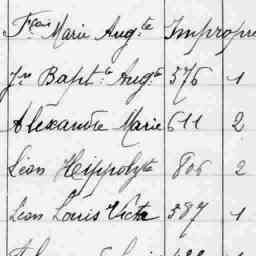 Fçois Marie Augte Impropre
Jn Baptte Augte 576 1
Alexandre Marie 611 2
Léon Hippolyte 806 2
Léon Louis Victor 587 1